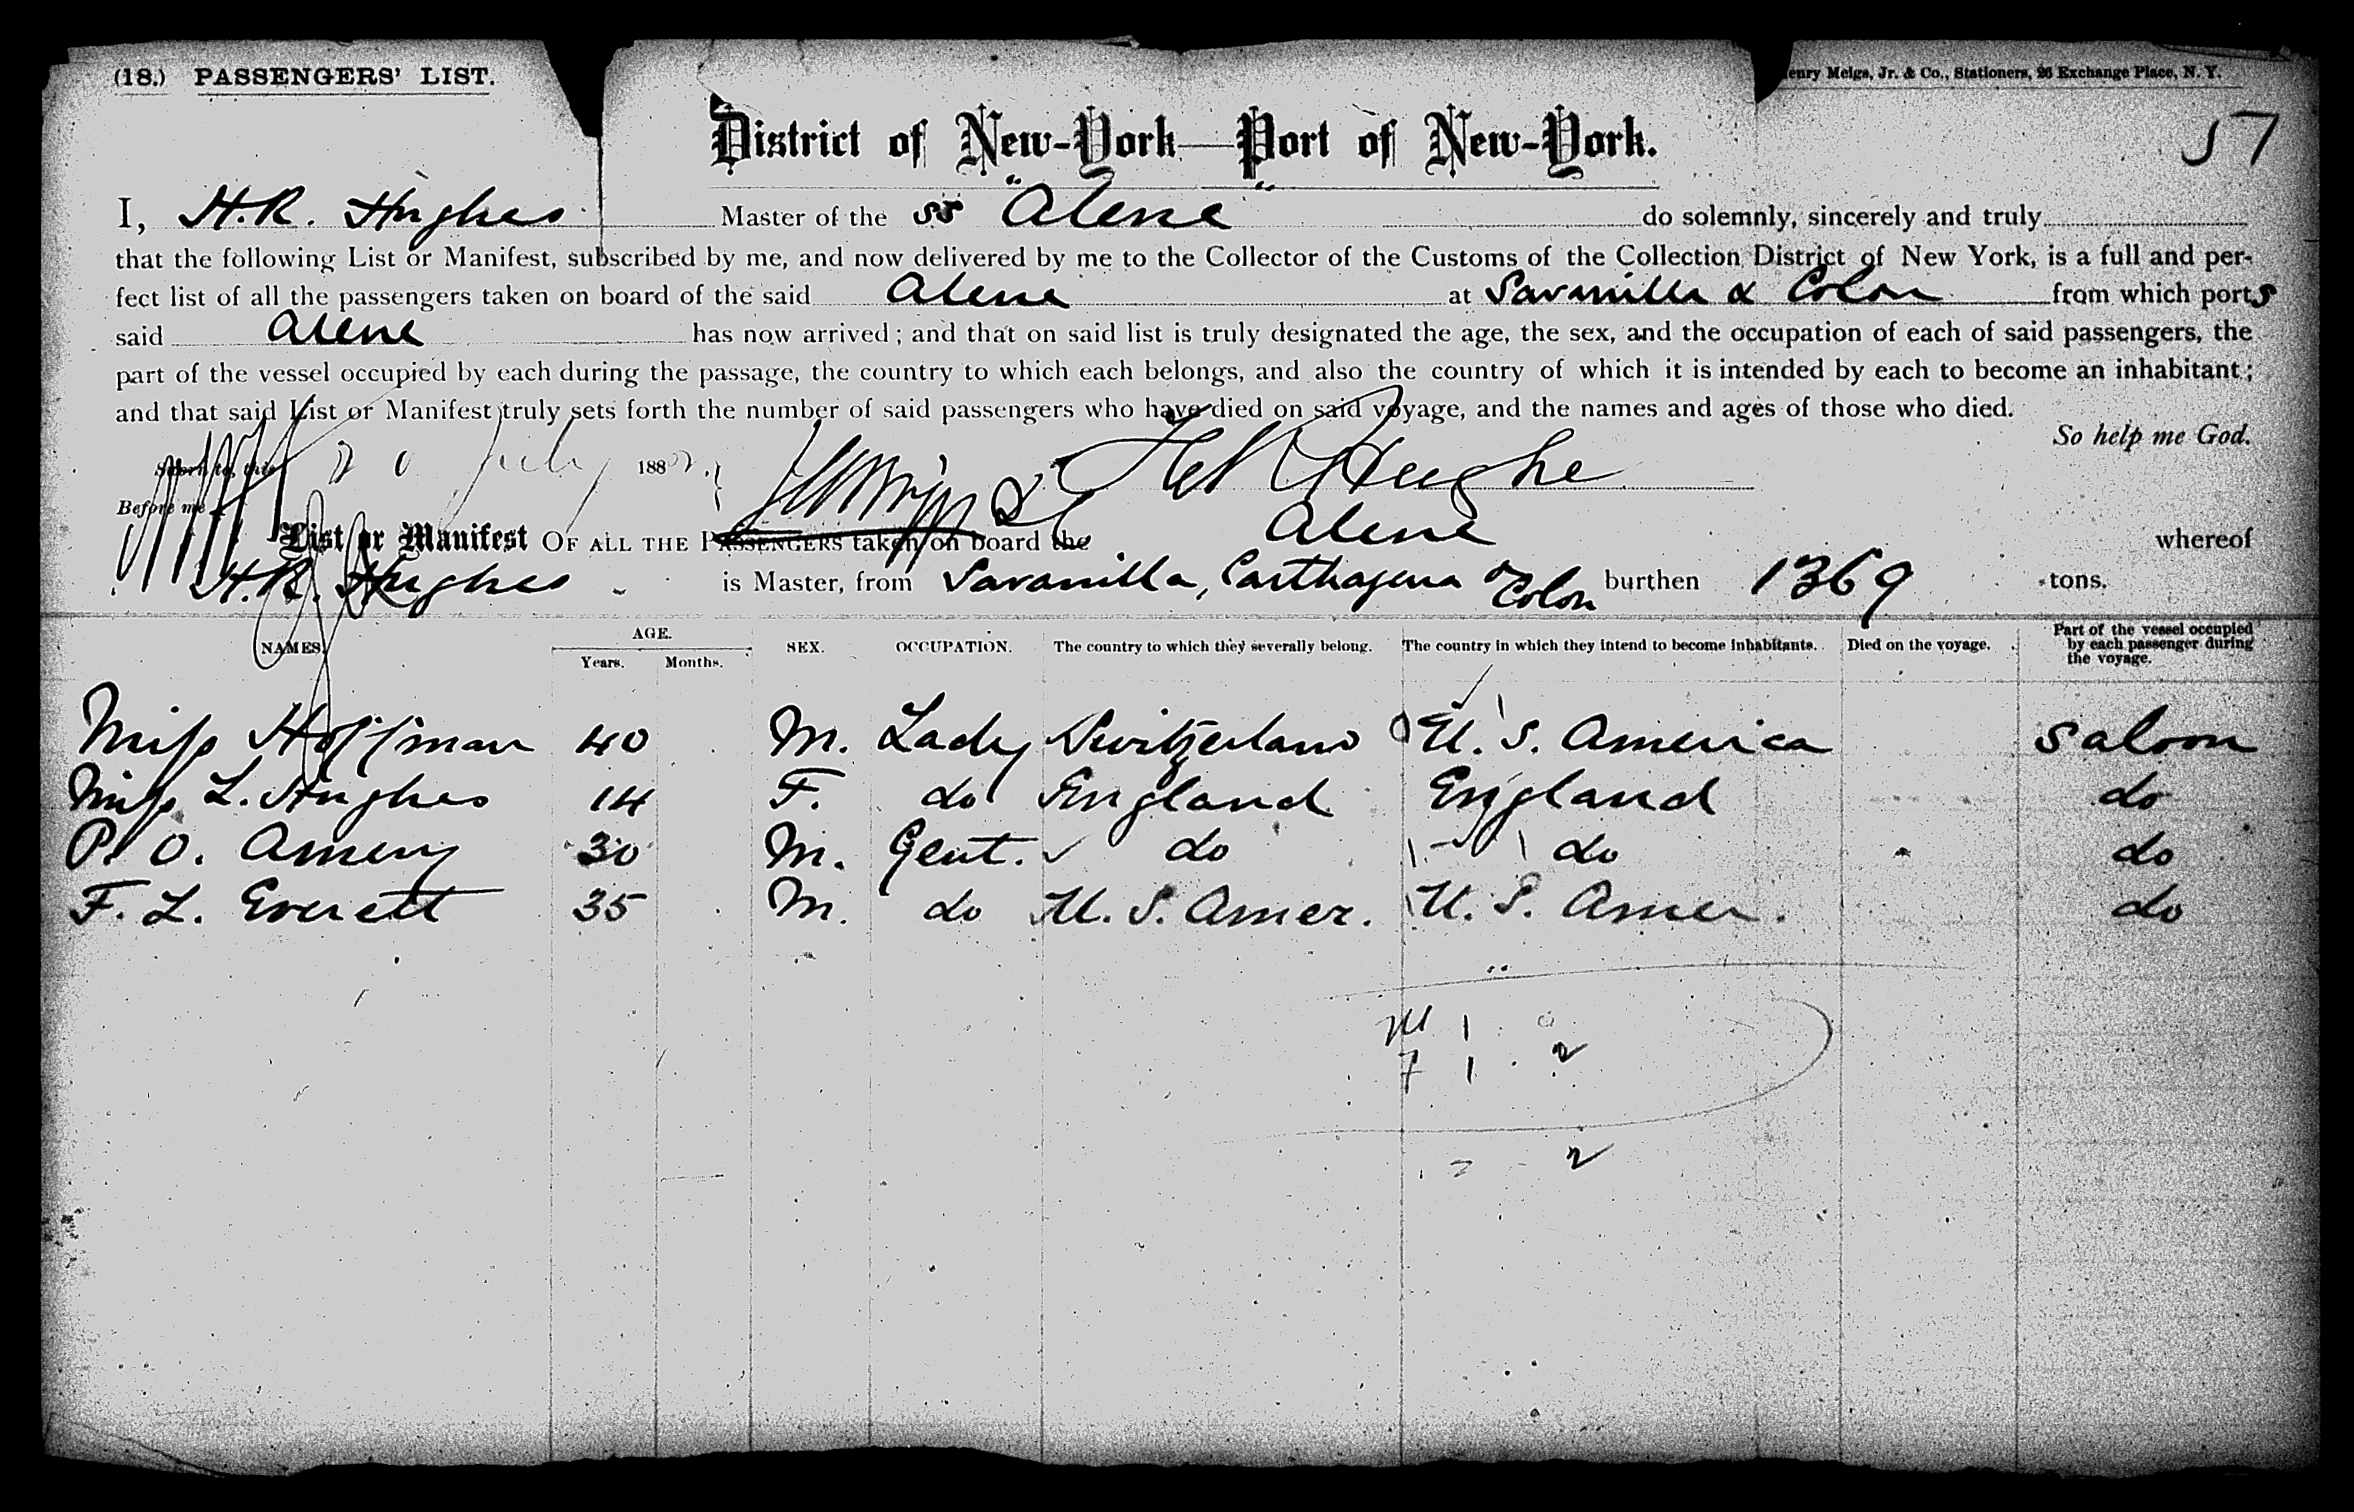 (18.) PASSENGERS' LIST.
enry Meigs, Jr. & Co., Stationers, 26 Exchange Place, N. Y.
57
District of New-York—Port of New-York.
I, H.R. Hughes Master of the SS "Alene" do solemnly, sincerely and truly
that the following List or Manifest, subscribed by me, and now delivered by me to the Collector of the Customs of the Collection District of New York, is a full and per-
fect list of all the passengers taken on board of the said Alene at Savanilla & Colon from which ports
said Alene has now arrived; and that on said list is truly designated the age, the sex, and the occupation of each of said passengers, the
part of the vessel occupied by each during the passage, the country to which each belongs, and also the country of which it is intended by each to become an inhabitant;
and that said List or Manifest truly sets forth the number of said passengers who have died on said voyage, and the names and ages of those who died.
So help me God.
Sworn to, this July 188
Before me
List or Manifest OF ALL THE PASSENGERS taken on board the Alene whereof
H.R. Hughes is Master, from Savanilla, Carthagena & Colon burthen 1369 tons.
NAMES. AGE. Years. Months. SEX. OCCUPATION. The country to which they severally belong. The country in which they intend to become inhabitants. Died on the voyage. Part of the vessel occupied by each passenger during the voyage.
Miss Hoffman 40 M. Lady Switzerland U. S. America Saloon
Miss L. Hughes 14 F. do England England do
P. O. Amery 30 M. Gent. do do do
F. L. Everett 35 M. do U. S. Amer. U. S. Amer. do
M 1
F 1 2
2